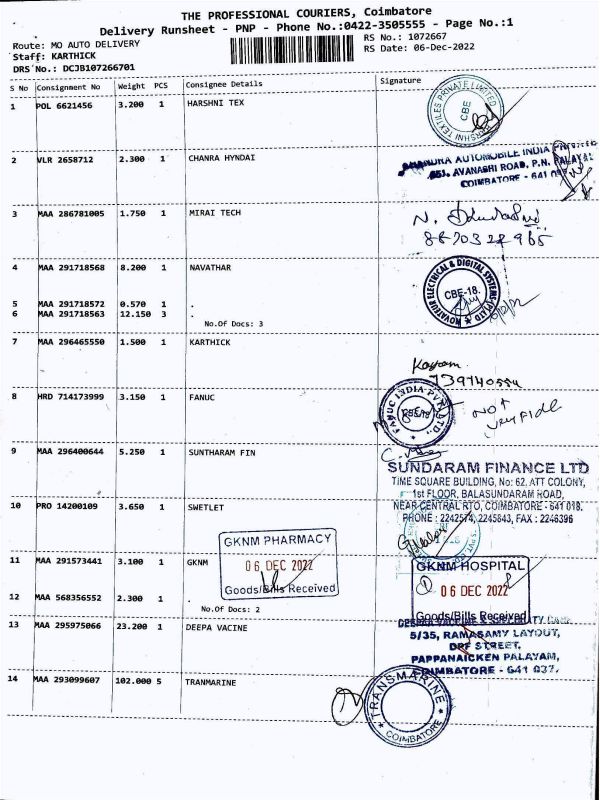 THE PROFESSIONAL COURIERS, Coimbatore
Delivery Runsheet - PNP - Phone No.:0422-3505555 - Page No.:1
Route: MO AUTO DELIVERY
RS No.: 1072667
Staff: KARTHICK
RS Date: 06-Dec-2022
DRS No.: DCJB107266701
S No Consignment No Weight PCS Consignee Details Signature
1 POL 6621456 3.200 1 HARSHNI TEX
CBE
2 VLR 2658712 2.300 1 CHANRA HYNDAI
AUTOMOBILE INDIA
AVANASHI ROAD, P.N. PALAYAM
COIMBATORE - 641
3 MAA 286781005 1.750 1 MIRAI TECH
8870322965
4 MAA 291718568 8.200 1 NAVATHAR
NOVATEUR ELECTRICAL & DIGITAL SYSTEMS (P) LTD
CBE-18.
5 MAA 291718572 0.570 1 .
6 MAA 291718563 12.150 3 .
No.Of Docs: 3
7 MAA 296465550 1.500 1 KARTHICK
8 HRD 714173999 3.150 1 FANUC
FANUC INDIA PVT. LTD.,
NOT
9 MAA 296400644 5.250 1 SUNTHARAM FIN
SUNDARAM FINANCE LTD
TIME SQUARE BUILDING, No: 62, ATT COLONY,
1st FLOOR, BALASUNDARAM ROAD,
NEAR CENTRAL RTO, COIMBATORE - 641 018.
PHONE : 2242574, 2245843, FAX : 2246396
10 PRO 14200109 3.650 1 SWETLET
GKNM PHARMACY
06 DEC 2022
Goods/Bills Received
11 MAA 291573441 3.100 1 GKNM
GKNM HOSPITAL
06 DEC 2022
Goods/Bills Received
12 MAA 568356552 2.300 1 .
No.Of Docs: 2
13 MAA 295975066 23.200 1 DEEPA VACINE
5/35, RAMASAMY LAYOUT,
DPF STREET,
PAPPANAICKEN PALAYAM,
COIMBATORE - 641 037.
14 MAA 293099607 102.000 5 TRANMARINE
TRANSMARINE
COIMBATORE